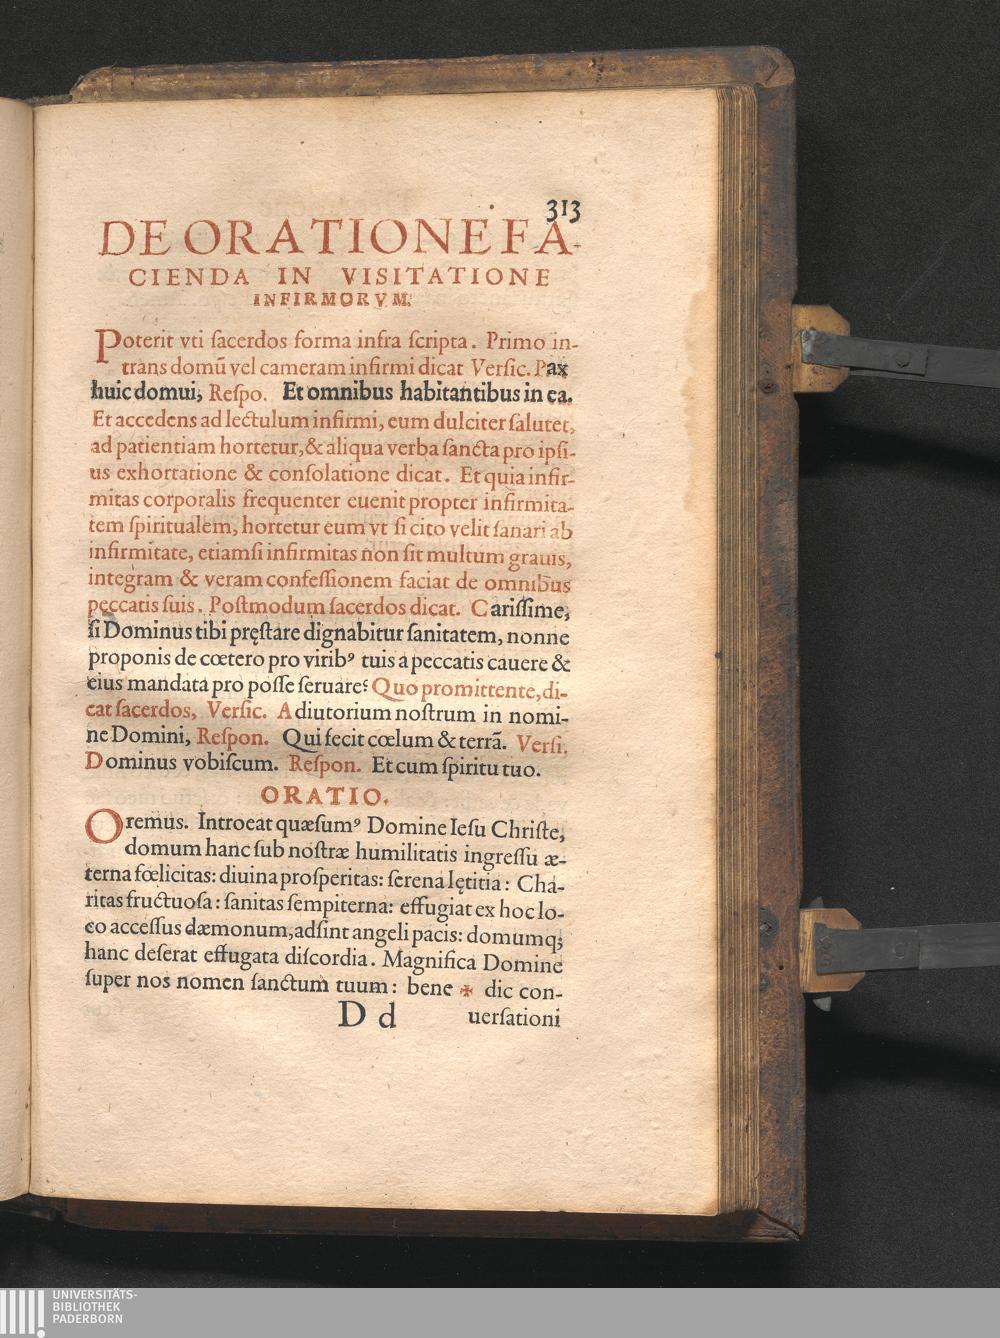 313
DE ORATIONE FA-
CIENDA IN VISITATIONE
INFIRMORVM.
Poterit vti ſacerdos forma infra ſcripta. Primo in-
trans domū vel cameram infirmi dicat Verſic. Pax
huic domui, Reſpo. Et omnibus habitantibus in ea.
Et accedens ad lectulum infirmi, eum dulciter ſalutet,
ad patientiam hortetur, & aliqua verba ſancta pro ipſi-
us exhortatione & conſolatione dicat. Et quia infir-
mitas corporalis frequenter euenit propter infirmita-
tem ſpiritualem, hortetur eum vt ſi cito velit ſanari ab
infirmitate, etiamſi infirmitas non ſit multum grauis,
integram & veram confeſſionem faciat de omnibus
peccatis ſuis. Poſtmodum ſacerdos dicat. Cariſſime,
ſi Dominus tibi pręſtare dignabitur ſanitatem, nonne
proponis de cœtero pro viribꝰ tuis a peccatis cauere &
eius mandata pro poſſe ſeruare? Quo promittente, di-
cat ſacerdos, Verſic. Adiutorium noſtrum in nomi-
ne Domini, Reſpon. Qui fecit cœlum & terrā. Verſi.
Dominus vobiſcum. Reſpon. Et cum ſpiritu tuo.
ORATIO.
Oremus. Introeat quæſumꝰ Domine Ieſu Chriſte,
domum hanc ſub noſtræ humilitatis ingreſſu æ-
terna fœlicitas: diuina proſperitas: ſerena lętitia: Cha-
ritas fructuoſa: ſanitas ſempiterna: effugiat ex hoc lo-
co acceſſus dæmonum, adſint angeli pacis: domumq;
hanc deſerat effugata diſcordia. Magnifica Domine
ſuper nos nomen ſanctum tuum: bene ✠ dic con-
D d uerſationi
UNIVERSITÄTS-
BIBLIOTHEK
PADERBORN